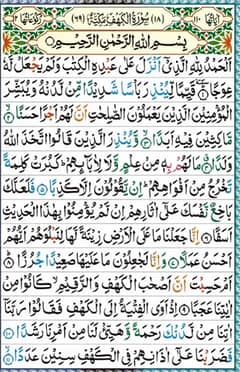 اٰيَاتُهَا ١١٠ (١٨) سُوْرَةُ الْكَهْفِ مَكِّيَّةٌ (٦٩) رُكُوْعَاتُهَا
بِسْمِ اللّٰهِ الرَّحْمٰنِ الرَّحِيْمِ
اَلْحَمْدُ لِلّٰهِ الَّذِيْٓ اَنْزَلَ عَلٰى عَبْدِهِ الْكِتٰبَ وَلَمْ يَجْعَلْ لَّهٗ
عِوَجًا ١ قَيِّمًا لِّيُنْذِرَ بَاْسًا شَدِيْدًا مِّنْ لَّدُنْهُ وَيُبَشِّرَ
الْمُؤْمِنِيْنَ الَّذِيْنَ يَعْمَلُوْنَ الصّٰلِحٰتِ اَنَّ لَهُمْ اَجْرًا حَسَنًا ٢
مَّاكِثِيْنَ فِيْهِ اَبَدًا ٣ وَّيُنْذِرَ الَّذِيْنَ قَالُوا اتَّخَذَ اللّٰهُ
وَلَدًا ٤ مَا لَهُمْ بِهٖ مِنْ عِلْمٍ وَّلَا لِاٰبَآئِهِمْ كَبُرَتْ كَلِمَةً
تَخْرُجُ مِنْ اَفْوَاهِهِمْ اِنْ يَّقُوْلُوْنَ اِلَّا كَذِبًا ٥ فَلَعَلَّكَ
بَاخِعٌ نَّفْسَكَ عَلٰٓى اٰثَارِهِمْ اِنْ لَّمْ يُؤْمِنُوْا بِهٰذَا الْحَدِيْثِ
اَسَفًا ٦ اِنَّا جَعَلْنَا مَا عَلَى الْاَرْضِ زِيْنَةً لَّهَا لِنَبْلُوَهُمْ اَيُّهُمْ
اَحْسَنُ عَمَلًا ٧ وَاِنَّا لَجٰعِلُوْنَ مَا عَلَيْهَا صَعِيْدًا جُرُزًا ٨
اَمْ حَسِبْتَ اَنَّ اَصْحٰبَ الْكَهْفِ وَالرَّقِيْمِ كَانُوْا مِنْ
اٰيٰتِنَا عَجَبًا ٩ اِذْ اَوَى الْفِتْيَةُ اِلَى الْكَهْفِ فَقَالُوْا رَبَّنَآ
اٰتِنَا مِنْ لَّدُنْكَ رَحْمَةً وَّهَيِّئْ لَنَا مِنْ اَمْرِنَا رَشَدًا ١٠
فَضَرَبْنَا عَلٰٓى اٰذَانِهِمْ فِى الْكَهْفِ سِنِيْنَ عَدَدًا ١١